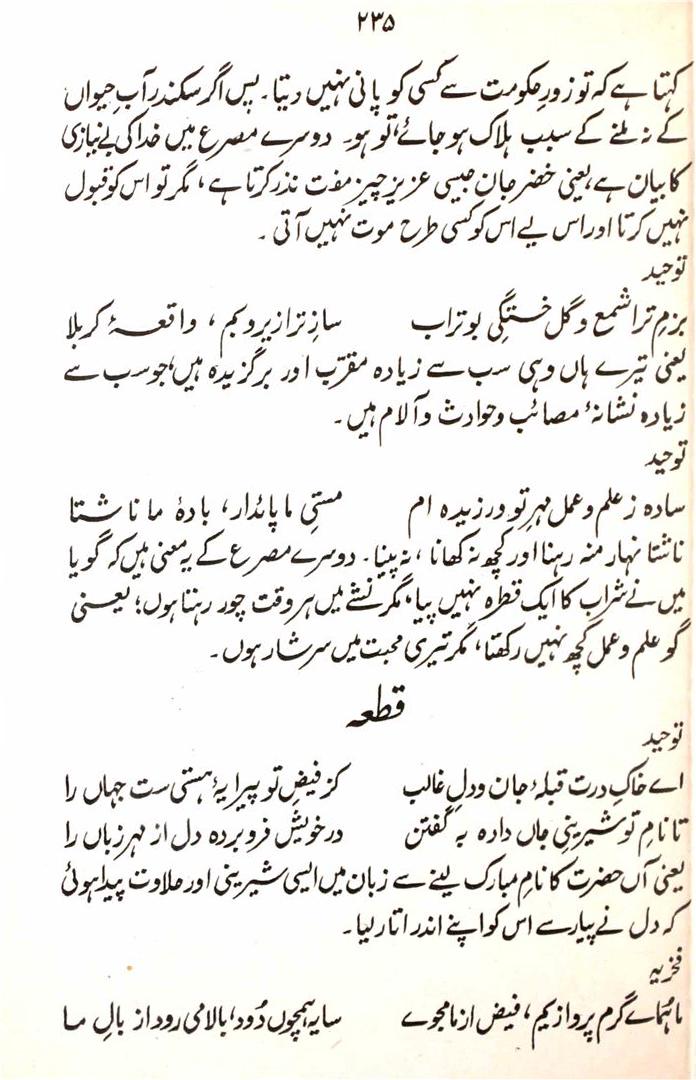 ۲۳۵
کہتا ہے کہ تو زورِ حکومت سے کسی کو پانی نہیں دیتا۔ پس اگر سکندر آبِ حیواں
کے نہ ملنے کے سبب ہلاک ہو جائے، تو ہو۔ دوسرے مصرع میں خدا کی بے نیازی
کا بیان ہے، یعنی خضر جان جیسی عزیز چیز مفت نذر کرتا ہے، مگر تو اس کو قبول
نہیں کرتا اور اس لیے اس کو کسی طرح موت نہیں آتی۔
توحید
بزمِ ترا شمع و گل خستگیِ بوتراب سازِ ترا زیر و بم، واقعۂ کربلا
یعنی تیرے ہاں وہی سب سے زیادہ مقرّب اور برگزیدہ ہیں، جو سب سے
زیادہ نشانۂ مصائب و حوادث و آلام ہیں۔
توحید
سادہ ز علم و عمل مہرِ تو ورزیدہ ام مستیِ ما پائدار، بادۂ ما ناشتا
ناشتا نہار منہ رہنا اور کچھ نہ کھانا، نہ پینا۔ دوسرے مصرع کے یہ معنی ہیں کہ گویا
میں نے شراب کا ایک قطرہ نہیں پیا، مگر نشے میں ہر وقت چور رہتا ہوں؛ یعنی
گو علم و عمل کچھ نہیں رکھتا، مگر تیری محبت میں سرشار ہوں۔
قطعہ
توحید
اے خاکِ درت قبلۂ جان و دلِ غالب کز فیضِ تو پیرایۂ ہستی ست جہاں را
تا نامِ تو شیرینیِ جاں دادہ بہ گفتن در خویش فرو بردہ دل از مہر زباں را
یعنی آں حضرت کا نامِ مبارک لینے سے زبان میں ایسی شیرینی اور حلاوت پیدا ہوئی
کہ دل نے پیار سے اس کو اپنے اندر اتار لیا۔
فخریہ
ما ہُماے گرم پروازیم، فیض از ما مجوے سایہ ہمچوں دُود، بالا می رود از بالِ ما